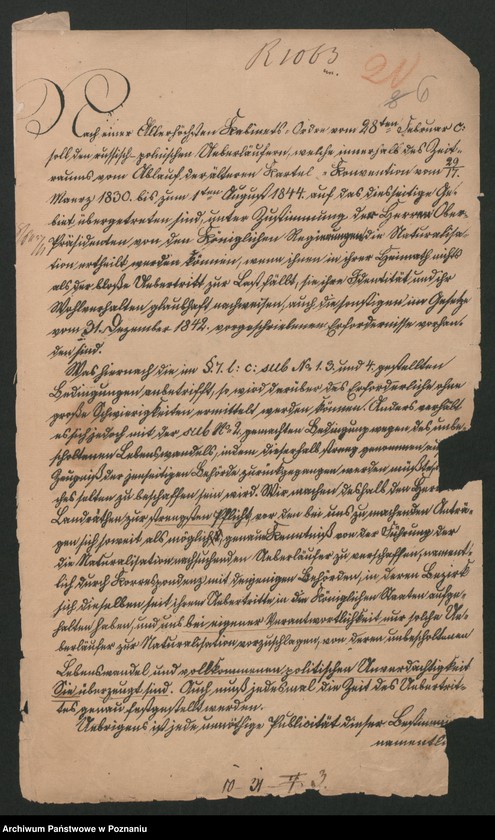 R 1063
21
8 6
Nach einer Allerhöchsten Kabinets-Ordre vom 28ten Februar c:
soll den russisch-polnischen Ueberläufern, welche innerhalb des Zeit-
raums vom Ablauf der älteren Kartel-Konvention vom 29/17.
Maerz 1830. bis zum 1ten August 1844. auf das diesseitige Ge-
biet übergetreten sind, unter Zustimmung der Herren Ober-
Präsidenten von den Königlichen Regierungen die Naturalisa-
tion ertheilt werden können, wenn ihnen in ihrer Heimath nichts
als der bloße Uebertritt zur Last fällt, sie ihre Identität und ihr
Wohlverhalten glaubhaft nachweisen, auch die sonstigen im Gesetze
vom 31. Dezember 1842. vorgeschriebenen Erfordernisse vorhan-
den sind.
Was hiernach die im §. 7. l: c: sub No 1. 3. und 4. gestellten
Bedingungen anbetrifft, so wird darüber das Erforderliche ohne
große Schwierigkeiten ermittelt werden können. Anders verhält
es sich jedoch mit der sub No 2. gemachten Bedingung wegen des unbe-
scholtenen Lebenswandels, indem dieserhalb streng genommen,
Zeugniß der jenseitigen Behörde zurückgegangen werden müßte,
ches selten zu beschaffen sein wird. Wir machen deshalb den
Landräthen zur strengsten Pflicht, vor den bei uns zu machenden Anträ-
gen sich, soweit als möglich, genaue Kenntniß von der Führung der
die Naturalisation nachsuchenden Ueberläufer zu verschaffen, nament-
lich durch Korrespondenz mit denjenigen Behörden, in deren Bezirk
sich dieselben seit ihrem Uebertritte in die Königlichen Staaten aufge-
halten haben, und uns bei eigener Verantwortlichkeit nur solche Ue-
berläufer zur Naturalisation vorzuschlagen, von deren unbescholtenen
Lebenswandel und vollkommenen politischen Unverdächtigkeit
Sie überzeugt sind. Auch muß jedesmal die Zeit des Uebertrit-
tes genau festgestellt werden.
Uebrigens ist jede unnöthige Publicität dieser Bestimmu
namentli
Archiwum Państwowe w Poznaniu
www.szukajwarchiwach.gov.pl